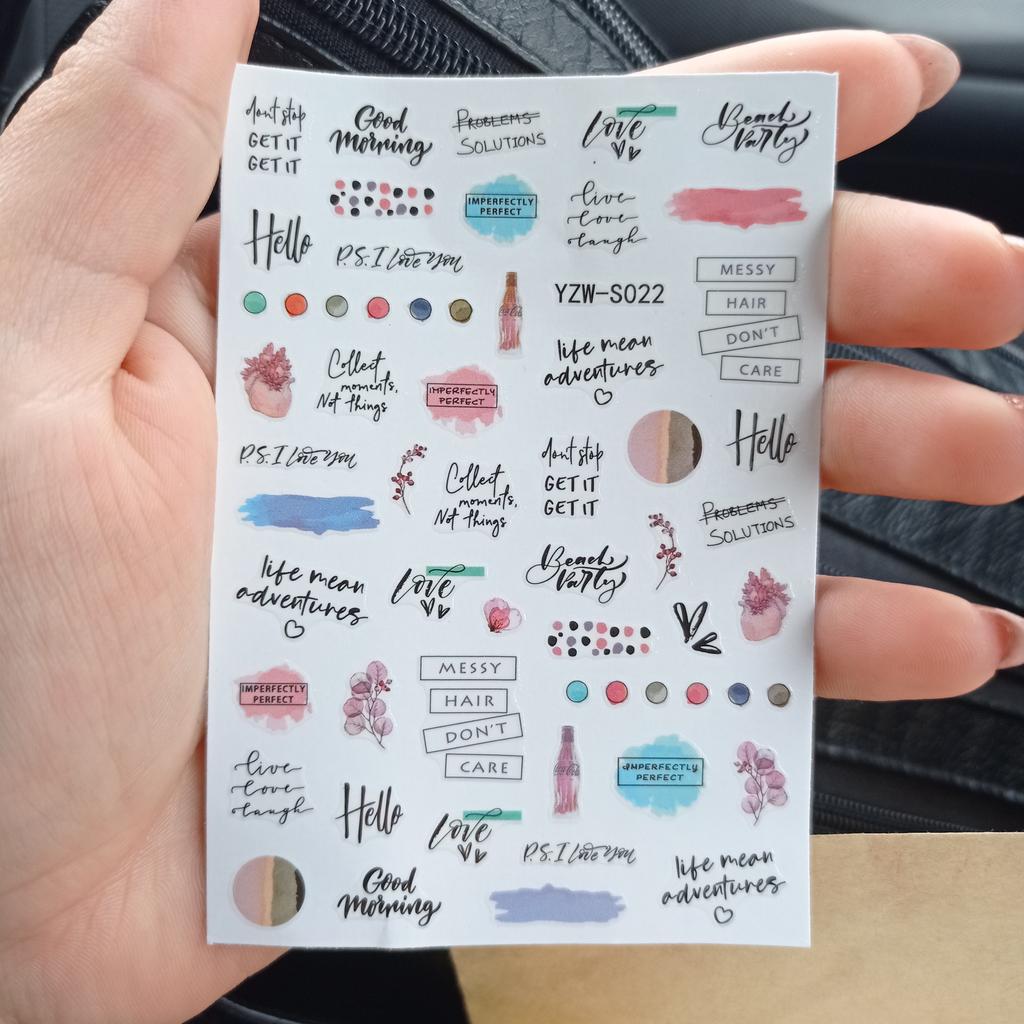 dont stop
GET IT
GET IT
Good
Morning
PROBLEMS
SOLUTIONS
love
Beach
Party
IMPERFECTLY
PERFECT
live
love
laugh
Hello
P.S. I Love You
Coca-Cola
YZW-S022
MESSY
HAIR
DON'T
CARE
life mean
adventures
Collect
moments,
Not things
IMPERFECTLY
PERFECT
Hello
P.S. I Love You
Collect
moments,
Not things
dont stop
GET IT
GET IT
PROBLEMS
SOLUTIONS
life mean
adventures
love
Beach
Party
IMPERFECTLY
PERFECT
MESSY
HAIR
DON'T
CARE
live
love
laugh
Hello
Coca-Cola
IMPERFECTLY
PERFECT
love
P.S. I Love You
Good
Morning
life mean
adventures